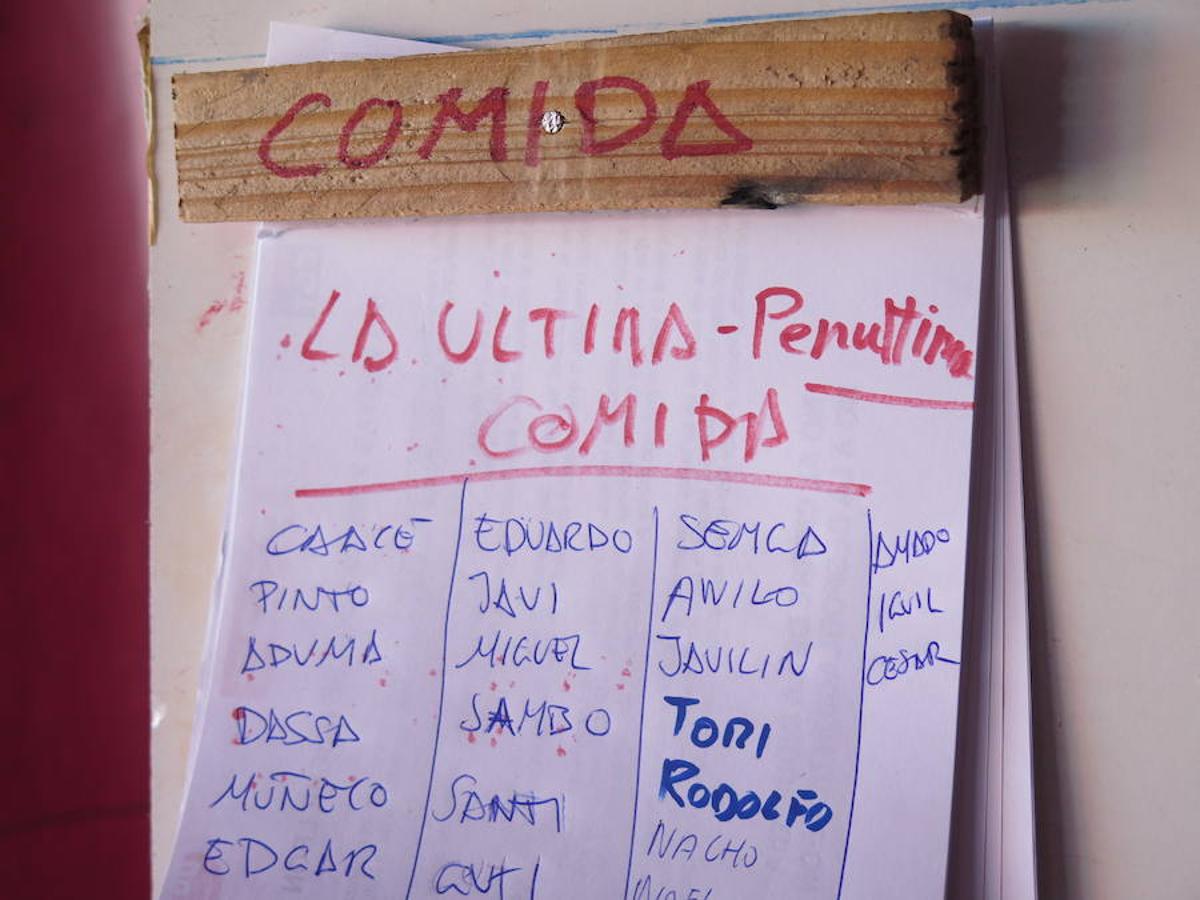 COMIDA
LA ULTIMA - Penultima
COMIDA
EDUARDO SEMGA AMADO
PINTO JAVI AWILO IGUIL
ADUMA MIGUEL JAVILIN CESAR
DASSA SAMBO TORI
MUÑECO SANTI RODOLFO
EDGAR GUTI NACHO